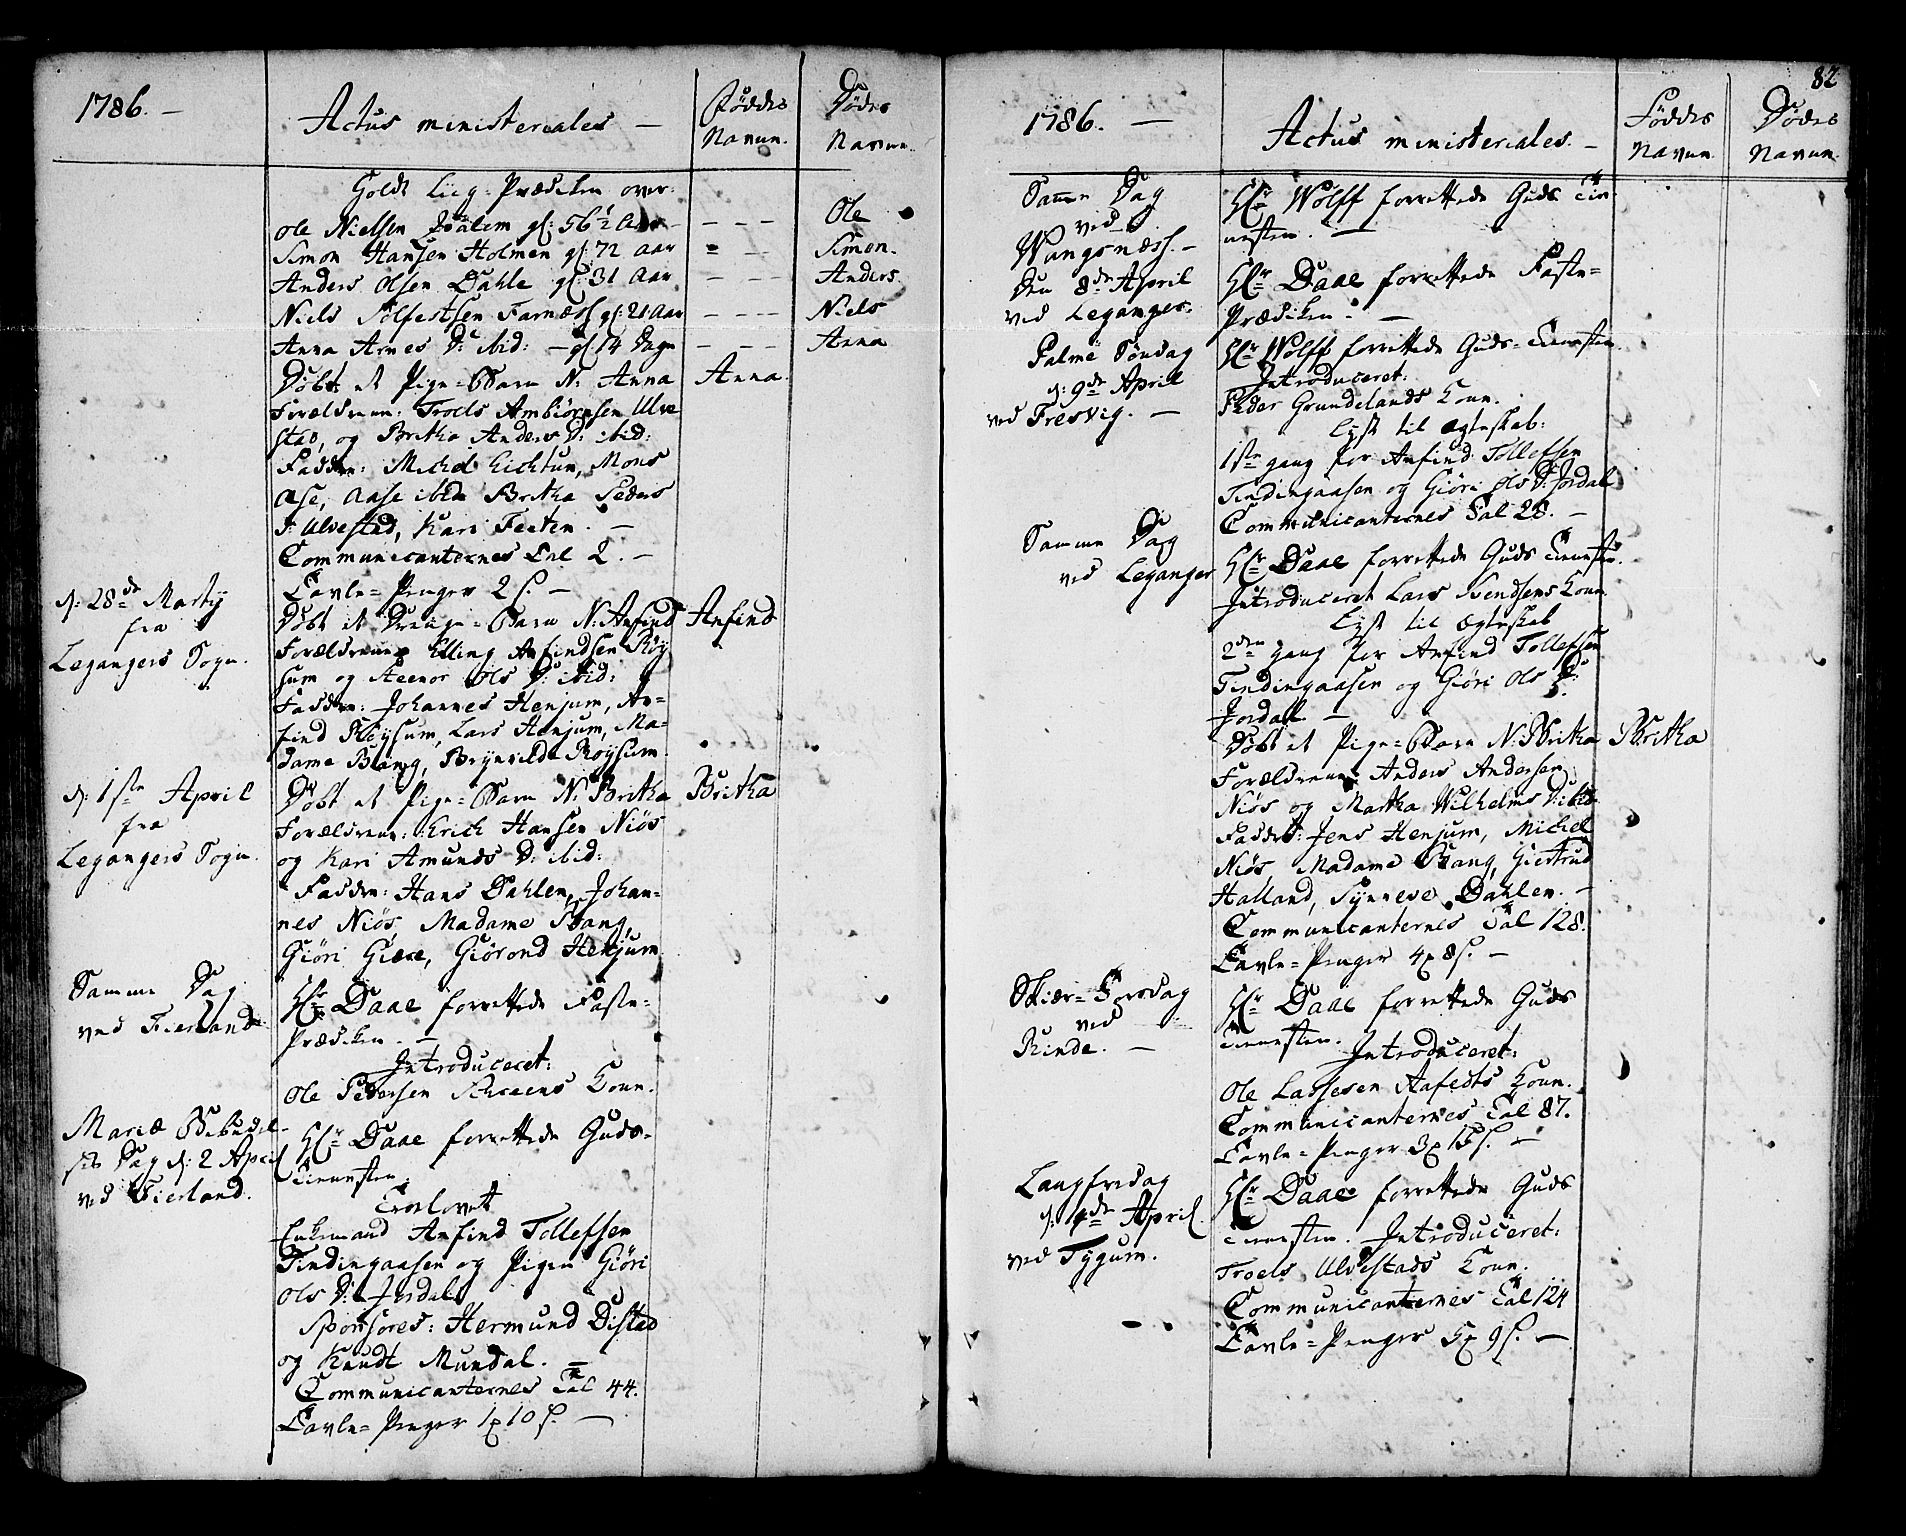 1786. —
Actus ministeriales —
Føddes Navne.
Dødes Navne.
Holdt Liig-Prædiken over:
Ole Nielsen gl: 56½ Aar — — — Ole
Simon Hansen Holmen gl: 72 Aar — — Simon.
Anders Olsen Dahle gl: 31 Aar — — — Anders.
Niels Sølfestsen Farnæss gl: 21 Aar — — — Niels
Anna Arnes D: ibid: — gl: 14 Dage — — — Anna
Døbt et Pige-Barn N: Anna Anna.
Forældrene: Troels Ambiørnsen Ulve
stad, og Britha Anders D: ibid:
Faddre: Michel Eichtun, Mons
Ase, Aase ibid: Britha Peders
D: Ulvestad, Kari Feeten. —
Communicanternes Tal 2. —
Tavle-Penger 2 s. —
d: 28de Martÿ
fra
Legangers Sogn.
Døbt et Drenge-Barn N: Anfind Anfind
Forældrene Elling Anfindsen Røÿ
sum og Ols D: ibid:
Faddre: Johannes Henjum, An-
find Røÿsum, Lars Henjum, Ma-
dame Bang, Brÿnilde Røÿsum.
d: 1ste April
fra
Legangers Sogn.
Døbt et Pige-Barn N: Britha Britha
Forældrene: Erich Hansen Niøs
og Kari Amunds D: ibid:
Faddre: Hans Dahlen, Johan-
nes Niøs, Madame Bang,
Giøri Giære, Giørond Henjum
Samme Dag
ved Fierland
Hr: Daae forrettede Faste-
Prædiken. —
Introduceret:
Ole Pedersen Koune.
Mariæ Bebudel-
ses Dag d: 2 April
ved Fierland.
Hr: Daae forrettede Guds-
Tienesten.
Trolovet
Enkemand Anfind Tollefsen
Tindingaasen og Pigen Giøri
Ols D: Jordal
Sponsores: Hermund Distad
og Knudt Mundal. —
Communicanternes Tal 44.
Tavle-Penger 1 10 s. —
82
1786. —
Actus ministeriales. —
Føddes Navne.
Dødes Navne.
Samme Dag
ved
Wangsnæss. —
Hr: Wolff forrettede Guds Tie-
nesten. —
Den 8de April
ved Leganger.
Hr: Daae forrettede Faste-
Prædiken. —
Palme Søndag
d: 9de April
ved Fresvig. —
Hr: Wolff forrettede Guds-Tienesten.
Introduceret:
Peder Grundelands Koune.
Lÿst til Ægteskab:
1ste gang for Anfind Tollefsen
Tindingaasen og Giøri Ols D: Jordal
Communicanternes Tal 28. —
Samme Dag
ved Leganger
Hr: Daae forrettede Guds Tienesten.
Introduceret Lars Svendsens Koune.
Lÿst til Ægteskab
2den gang for Anfind Tollefsen
Tindingaasen og Giøri Ols D:
Jordal —
Døbt et Pige-Barn N: Britha Britha
Forældrene Anders Andersen
Niøs og Martha Wilhelms D: ibid:
Faddre: Jens Henjum, Michel
Niøs, Madame Bang, Giertrud
Halland, Sÿnneve Dahlen. —
Communicanternes Tal 128.
Tavle-Penger 4 8 s. —
Skiær-Torsdag
ved
Rinde. —
Hr: Daae forrettede Guds
Tienesten.
Introduceret:
Ole Lassesen Aafedts Koune.
Communicanternes Tal 87.
Tavle-Penger 3 15 s. —
Langfredag
ved Tÿgum.
Hr: Daae forrettede Guds
Tienesten. Introduceret:
Troels Ulvestads Koune.
Communicanternes Tal 124
Tavle-Penger 5 9 s. —